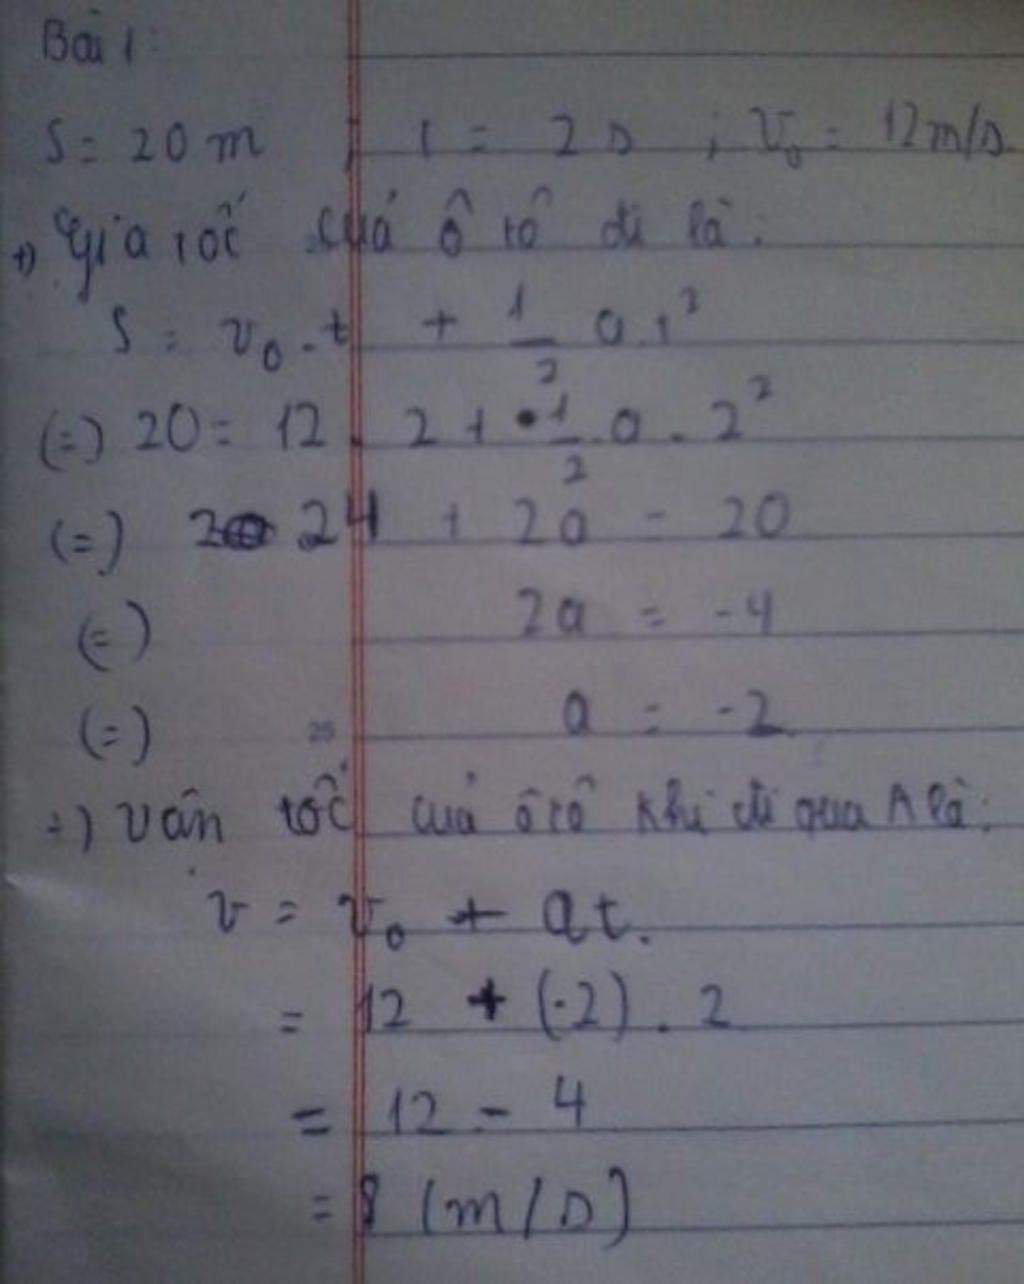 Bài 1:
S = 20 m ; t = 2 s ; v₀ = 12 m/s.
+) Gia tốc của ô tô đi là:
S = v₀ . t + 1/2 a.t²
(=) 20 = 12 . 2 + 1/2 . a . 2²
(=) 24 + 2a = 20
(=) 2a = -4
(=) a = -2
=) vân tốc của ô tô khi đi qua A là:
v = v₀ + at.
= 12 + (-2) . 2
= 12 - 4
= 8 (m/s)